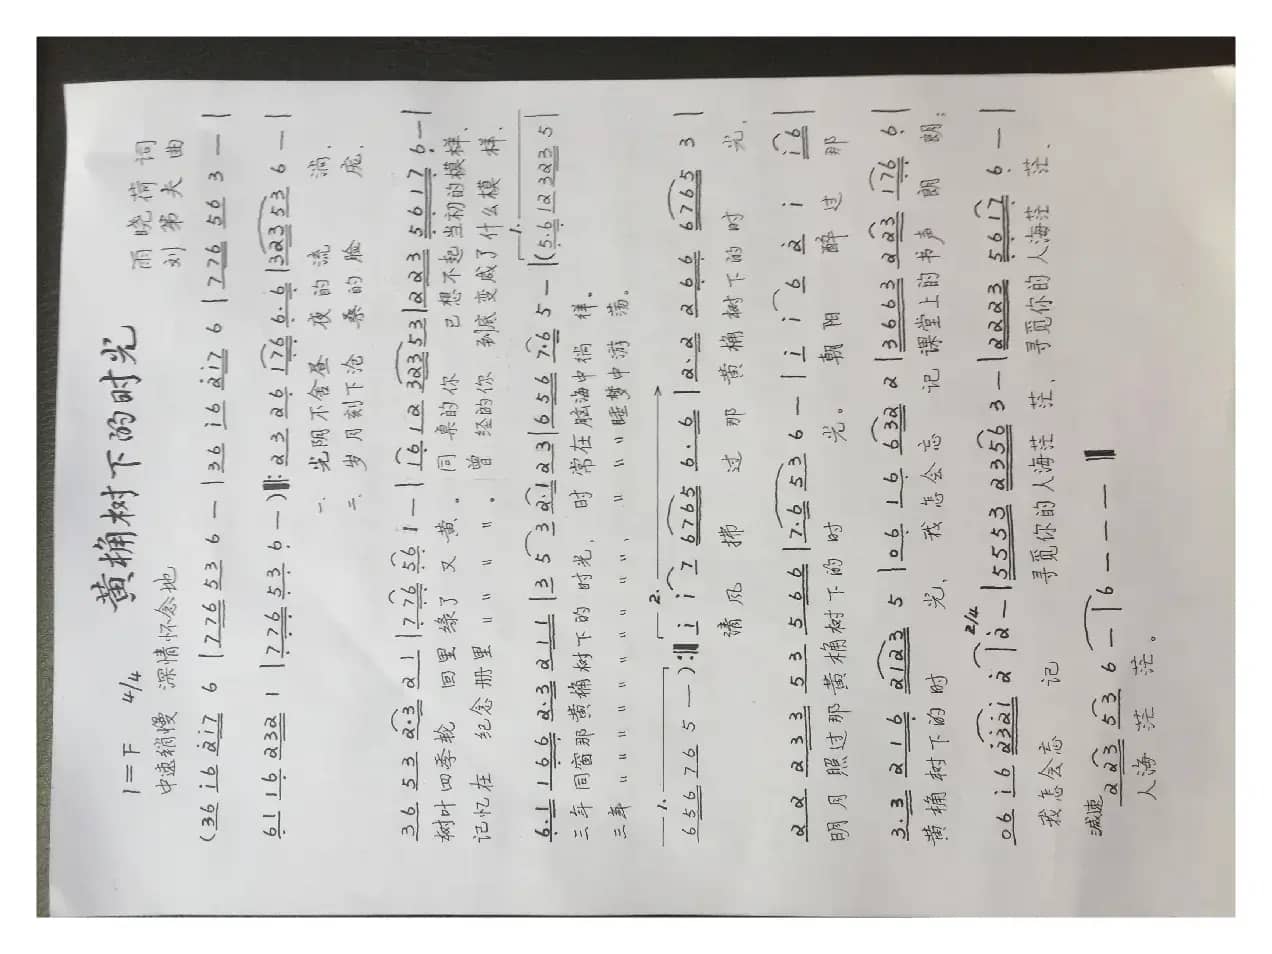 黄桷树下的时光
1=F 4/4
雨晓荷 词
中速稍慢 深情怀念地
刘第夫 曲
(36 i6 2i7 6 | 776 53 6 — | 36 i6 2i7 6 | 776 56 3 — |
61 16 232 1 | 776 53 6 — )‖: 23 26 176 6·6 | 323 53 6 — |
一. 光阴不舍昼夜的流淌.
二. 岁月刻下沧桑的脸庞.
36 53 2·3 2 | 776 561 — | 16 12 323 53 | 223 5617 6 — |
树叶四季轮回里绿了又黄. 同桌的你 已想不起当初的模样.
记忆在纪念册里〃〃〃〃. 曾经的你 到底变成了什么模样.
6·1 166 2·3 211 | 35 3 2·1 23 | 656 7·6 5 — | (5·6 12 323 5 |
三年同窗那黄桷树下的时光, 时常在脑海中徜徉。
三年〃〃〃〃〃〃〃〃, 〃〃〃睡梦中游荡。
1. 2.
656 76 5 — ):‖ i i 7 6765 6·6 | 2·2 266 6765 3 |
清风拂过那黄桷树下的时光.
22 233 53 566 | 7·6 53 6 — | i i 6 2 i i6 |
明月照过那黄桷树下的时光。 朝阳醉过那
3·3 216 2123 5 | 06 16 632 2 | 3663 223 176 6 |
黄桷树下的时光, 我怎会忘记课堂上的书声朗朗;
06 i6 232i 2 | 2/4 2 — | 5553 2356 3 — | 2223 5617 6 — |
我怎会忘记 寻觅你的人海茫茫, 寻觅你的人海茫茫.
减速
223 53 6 — | 6 — — — ‖
人海茫茫。